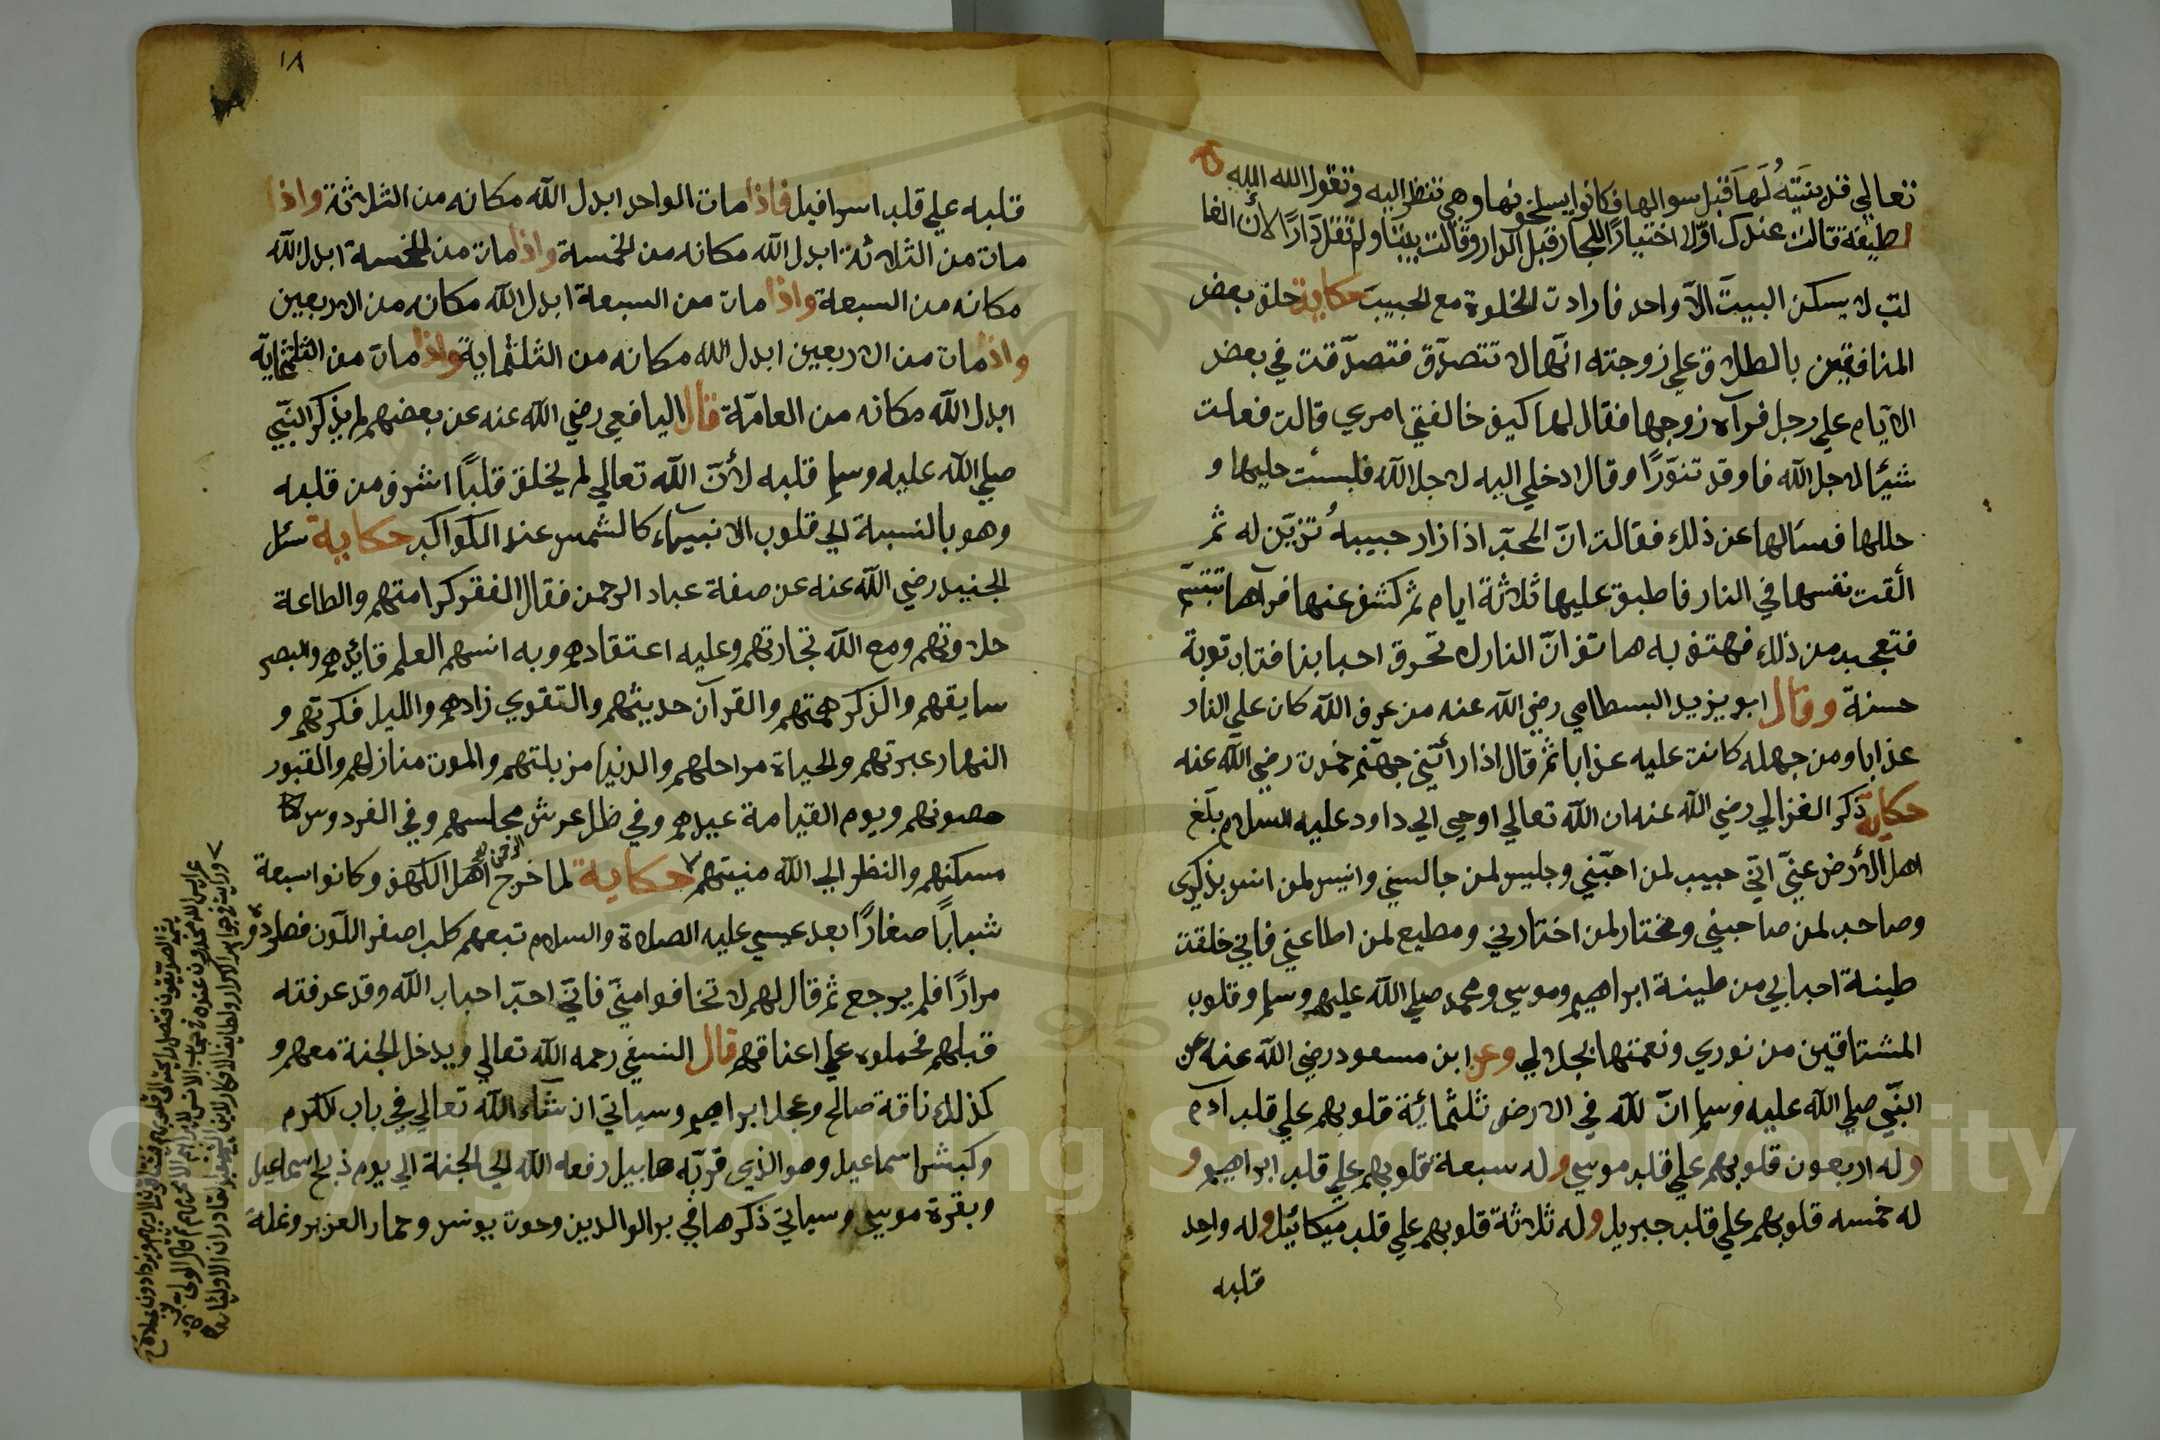 تعالي قد بنيته لها قبل سوالها فكانوا يسلخونها وهي تنظر اليه وتقول الله الله
لطيفة قالت عندك اولا اختيارا للجار قبل الدار وقالت بيتا ولم تقل دارا لان الغا
لب لا يسكن البيت الا واحد فارادت الخلوة مع الحبيب حكاية حلف بعض
المنافقين بالطلاق علي زوجته انها لا تتصدق فتصدقت في بعض
الايام علي رجل فرآه زوجها فقال لها كيف خالفتي امري قالت فعلت
شيئا لاجل الله فاوقد تنورا وقال ادخلي اليه لاجل الله فلبست حليها و
حللها فسالها عن ذلك فقالت ان المحب اذا زار حبيبه تزين له ثم
القت نفسها في النار فاطبق عليها ثلاثة ايام ثم كشف عنها فرآها تتبسم
فتعجب من ذلك فهتف به هاتف ان النار لا تحرق احبابنا فتاب توبة
حسنة وقال ابو يزيد البسطامي رضي الله عنه من عرف الله كان علي النار
عذابا ومن جهله كانت عليه عذابا ثم قال اذا رأتني جهنم خمدت رضي الله عنه
حكاية ذكر الغزالي رضي الله عنه ان الله تعالي اوحي الي داود عليه السلام بلغ
اهل الأرض عني اني حبيب لمن احبني وجليس لمن جالسني وانيس لمن انس بذكري
وصاحب لمن صاحبني ومختار لمن اختارني ومطيع لمن اطاعني فاني خلقت
طينة احبابي من طينة ابراهيم وموسي ومحمد صلي الله عليهم وسلم وقلوب
المشتاقين من نوري ونعمتها بجلالي وعن ابن مسعود رضي الله عنه عن
النبي صلي الله عليه وسلم ان لله في الارض ثلثمائة قلوبهم علي قلب آدم
وله اربعون قلوبهم علي قلب موسي وله سبعة قلوبهم علي قلب ابراهيم و
له خمسه قلوبهم علي قلب جبريل وله ثلاثة قلوبهم علي قلب ميكائيل وله واحد
قلبه
١٨
قلبه علي قلب اسرافيل فاذا مات الواحد ابدل الله مكانه من الثلاثة واذا
مات من الثلاثة ابدل الله مكانه من الخمسة واذا مات من الخمسة ابدل الله
مكانه من السبعة واذا مات من السبعة ابدل الله مكانه من الاربعين
واذا مات من الاربعين ابدل الله مكانه من الثلثماية واذا مات من الثلثماية
ابدل الله مكانه من العامة قال اليافعي رضي الله عنه عن بعضهم لم يذكر النبي
صلي الله عليه وسلم قلبه لأن الله تعالي لم يخلق قلبا اشرف من قلبه
وهو بالنسبة الي قلوب الانبياء كالشمس عند الكواكب حكاية سئل
الجنيد رضي الله عنه عن صفة عباد الرحمن فقال الفقر كرامتهم والطاعة
حلاوتهم ومع الله تجارتهم وعليه اعتقادهم وبه انسهم العلم قايدهم والبصر
سايقهم والذكر همتهم والقرآن حديثهم والتقوي زادهم والليل فكرتهم و
النهار عبرتهم والحياة مراحلهم والدنيا مزبلتهم والموت منازلهم والقبور
حصونهم ويوم القيامة عيدهم وفي ظل عرش مجلسهم وفي الفردوس
مسكنهم والنظر الي الله منيتهم حكاية لما خرج اهل الكهف وكانوا سبعة
شبابا صغارا بعد عيسي عليه الصلاة والسلام تبعهم كلب اصفر اللون فطردوه
مرارا فلم يرجع ثم قال لهم لا تخافوا مني فاني احب احباب الله وقد عرفته
قبلهم فحملوه علي اعناقهم قال النسفي رحمه الله تعالي ويدخل الجنة معهم و
كذلك ناقة صالح وعجل ابراهيم وسياتي ان شاء الله تعالي في باب الكرم
وكبش اسماعيل وهو الذي قربه هابيل رفعه الله الي الجنة الي يوم ذبح اسماعيل
وبقرة موسي وسياتي ذكرها في بر الوالدين وحوت يونس وحمار العزير ونملة
Copyright © King Saud University
1957